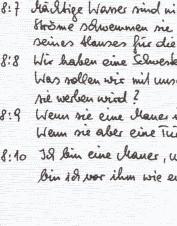 8:7 Mächtige Wasser sind ni
Ströme schwemmen sie
seines Hauses für die
8:8 Wir haben eine Schweste
Was sollen wir mit unse
sie werben wird?
8:9 Wenn sie eine Mauer i
Wenn sie aber eine Tür
8:10 Ich bin eine Mauer, u
bin ich vor ihm wie ei